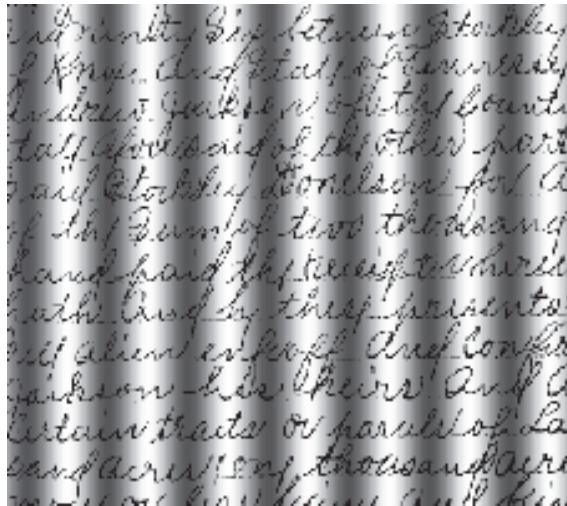 ninty Six between Stockley
of Knox And Stay of Tennessy
Andrew Jackson of the County
Stay aforesaid of the other part
Said Stockley Donelson for A
of the Sum of two thousand
hand paid the receipt
hath And by these presents
alien enfeoff And Confir
Jackson his heirs And A
Certain tracts or parcels of La
sand acres ong thousand acre